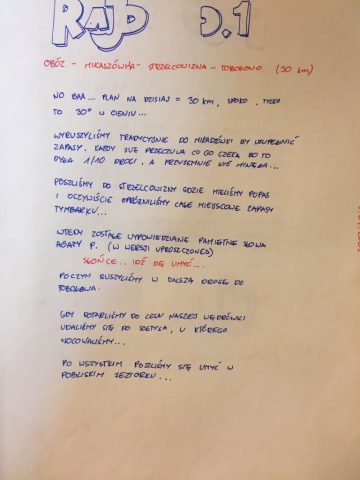 RAJD D.1
OBÓZ - MIKASZÓWKA - STRZELCOWIZNA - TOBOŁOWO (30 km)
NO BAA... PLAN NA DZISIAJ = 30 KM, SPOKO, TYLKO
TO 30° W CIENIU...
WYRUSZYLIŚMY TRADYCYJNIE DO MIKASZÓWKI BY UZUPEŁNIĆ
ZAPASY. KAŻDY JUŻ PRZECZUWA CO GO CZEKA BO TO
BYŁA 1/10 DROGI, A PRZYJEMNIE NIE MINĘŁA...
POSZLIŚMY DO STRZELCOWIZNY GDZIE MIELIŚMY POPAS
I OCZYWIŚCIE OPRÓŻNILIŚMY CAŁE MIEJSCOWE ZAPASY
TYMBARKU...
WTEDY ZOSTAŁE WYPOWIEDZIANE PAMIĘTNE SŁOWA
AGATY P. (W WERSJI UPROSZCZONEJ)
SŁOŃCE.. IDŹ SIĘ UMYĆ...
POCZYM RUSZYLIŚMY W DALSZĄ DROGĘ DO
TOBOŁOWA.
GDY DOTARLIŚMY DO CELU NASZEJ WĘDRÓWKI
UDALIŚMY SIĘ DO SOŁTYSA, U KTÓREGO
NOCOWALIŚMY...
PO WSZYSTKIM POSZLIŚMY SIĘ UMYĆ W
POBLISKIM JEZIORKU...